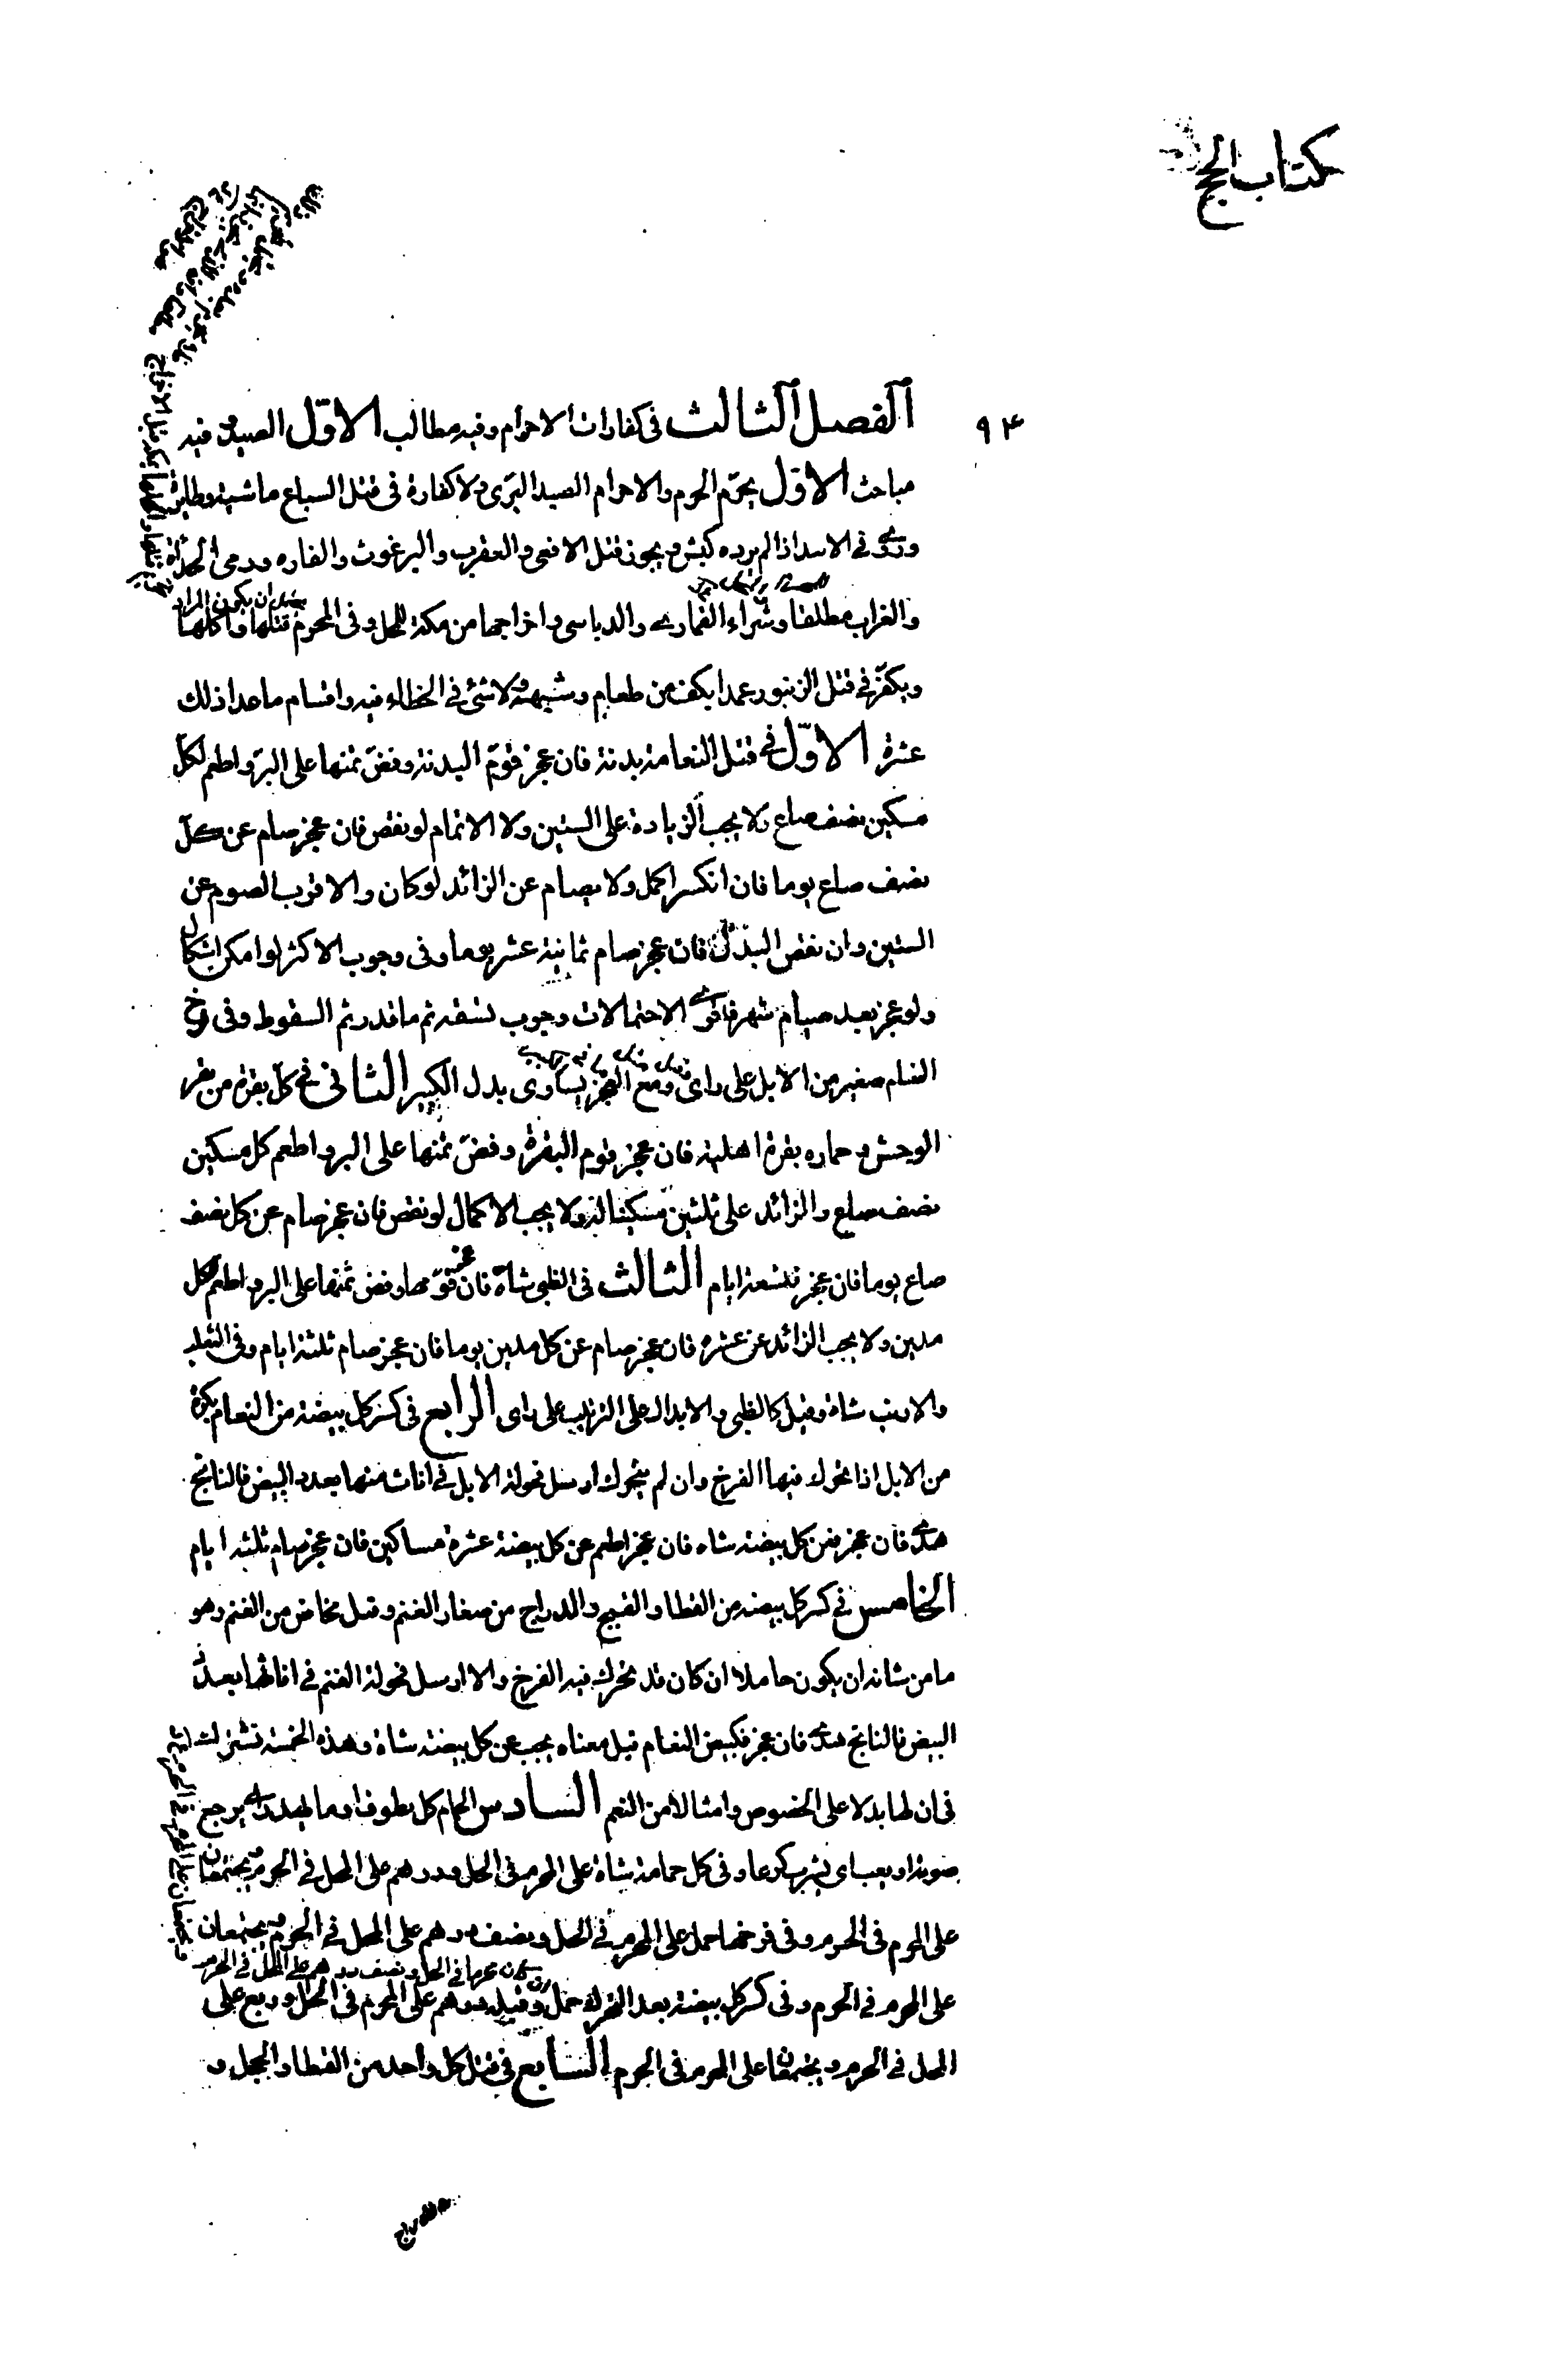 كتاب الحج
٩٤
الفصل الثالث في كفارات الاحرام وفيه مطالب الاول الصيد وفيه
مباحث الاول يحرّم الحرم والاحرام الصيد البرّى ولا كفارة فى قتل السباع ماشية وطايرة
وروى فى الاسد اذا لم يرده كبش ويجوز قتل الافعى والعقرب والبرغوث والفاره ورمى الحدأة
يحتمل ان يكون المراد
والغراب مطلقا وشراء القمارى والدباسى واخراجها من مكة للمحل وفى المحرم قتلها واكلها
ويكفّر فى قتل الزنبور عمدا بكف من طعام وشبهه ولا شئ فى الخطاء فيه واقسام ما عدا ذلك
عشرة الاوّل فى قتل النعامة بدنة فان عجز قوّم البدنة وفضّ ثمنها على البرّ واطعم لكلّ
مسكين نصف صاع ولا يجب الزيادة على الستين ولا الاتمام لو نقص فان عجز صام عن كلّ
نصف صاع يوما فان انكسر اكمل ولا يصام عن الزائد لو كان والاقرب الصوم عن
الستين وان نقص البدل فان عجز صام ثمانية عشر يوما وفى وجوب الاكثر لو امكن اشكال
ولو عجز بعد صيام شهر فاقوى الاحتمالات وجوب تسعة ثم ما قدر ثم السقوط وفى فرخ
النعام صغير من الابل على راى ومع العجز يساوى بدل الكبير الثانى فى كلّ بقرة من بقر
الوحش وحماره بقرة اهلية فان عجز قوم البقرة وفضّ ثمنها على البر واطعم كل مسكين
نصف صاع والزائد على ثلثين مسكينا له ولا يجب الاكمال لو نقص فان عجز صام عن كل نصف
صاع يوما فان عجز فتسعة ايام الثالث فى الظبى شاة فان عجز قوّمها وفض ثمنها على البر واطعم كل
مدين ولا يجب الزائد عن عشرة فان عجز صام عن كل مدين يوما فان عجز صام ثلثة ايام وفى الثعلب
والارنب شاة وقيل كالظبى والابدال على الترتيب على راى الرابع فى كسر كل بيضة من النعام بكرة
من الابل اذا تحرك فيها الفرخ وان لم يتحرك ارسل فحولة الابل فى اناث منها بعدد البيض فالناتج
هدى فان عجز فعن كل بيضة شاه فان عجز اطعم عن كل بيضة عشرة مساكين فان عجز صام ثلثة ايام
الخامس فى كسر كل بيضة من القطا والقبج والدراج من صغار الغنم وقيل مخاض من الغنم وهو
ما من شانه ان يكون حاملا ان كان قد تحرك فيه الفرخ والا ارسل فحولة الغنم فى اناثها بعدد
البيض فالناتج هدى فان عجز فكبيض النعام قيل معناه يجب عن كل بيضة شاة وهذه الخمسة تشترك
فى ان لها بدلا على الخصوص وامثالا من النعم السادس الحمام كل مطوق او ما يهدر اى يرجع
صوته او يعب اى يشرب كرعا وفى كل حمامة شاة على المحرم فى الحل ودرهم على المحل فى الحرم ويجتمعان
على المحرم فى الحرم وفى فرخها حمل على المحرم فى الحل ونصف درهم على المحل فى الحرم ويجتمعان
ان كان محرما فى الحل ونصف درهم على المحل فى الحرم
على المحرم فى الحرم وفى كسر كل بيضة بعد التحرك حمل وقبله درهم على المحرم فى الحل وربع على
المحل فى الحرم ويجتمعان على المحرم فى الحرم السابع فى قتل كل واحد من القطا والحجل و
والدراج